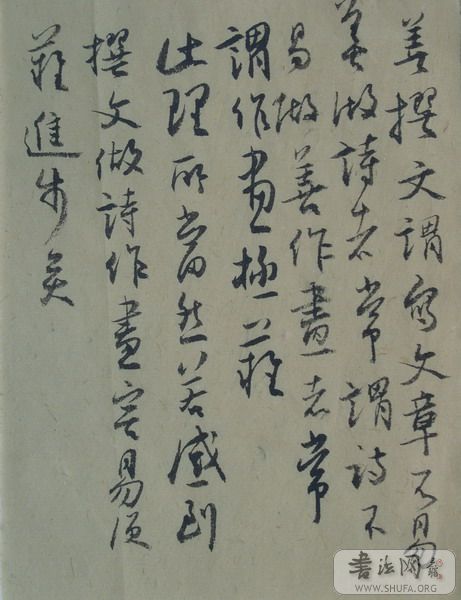 善撰文謂寫文章不易
善做詩者常謂詩不
易做善作畫者常
謂作畫極難
此理所當然若感到
撰文做詩作畫容易須
難進步矣
書法网
WWW.SHUFA.ORG